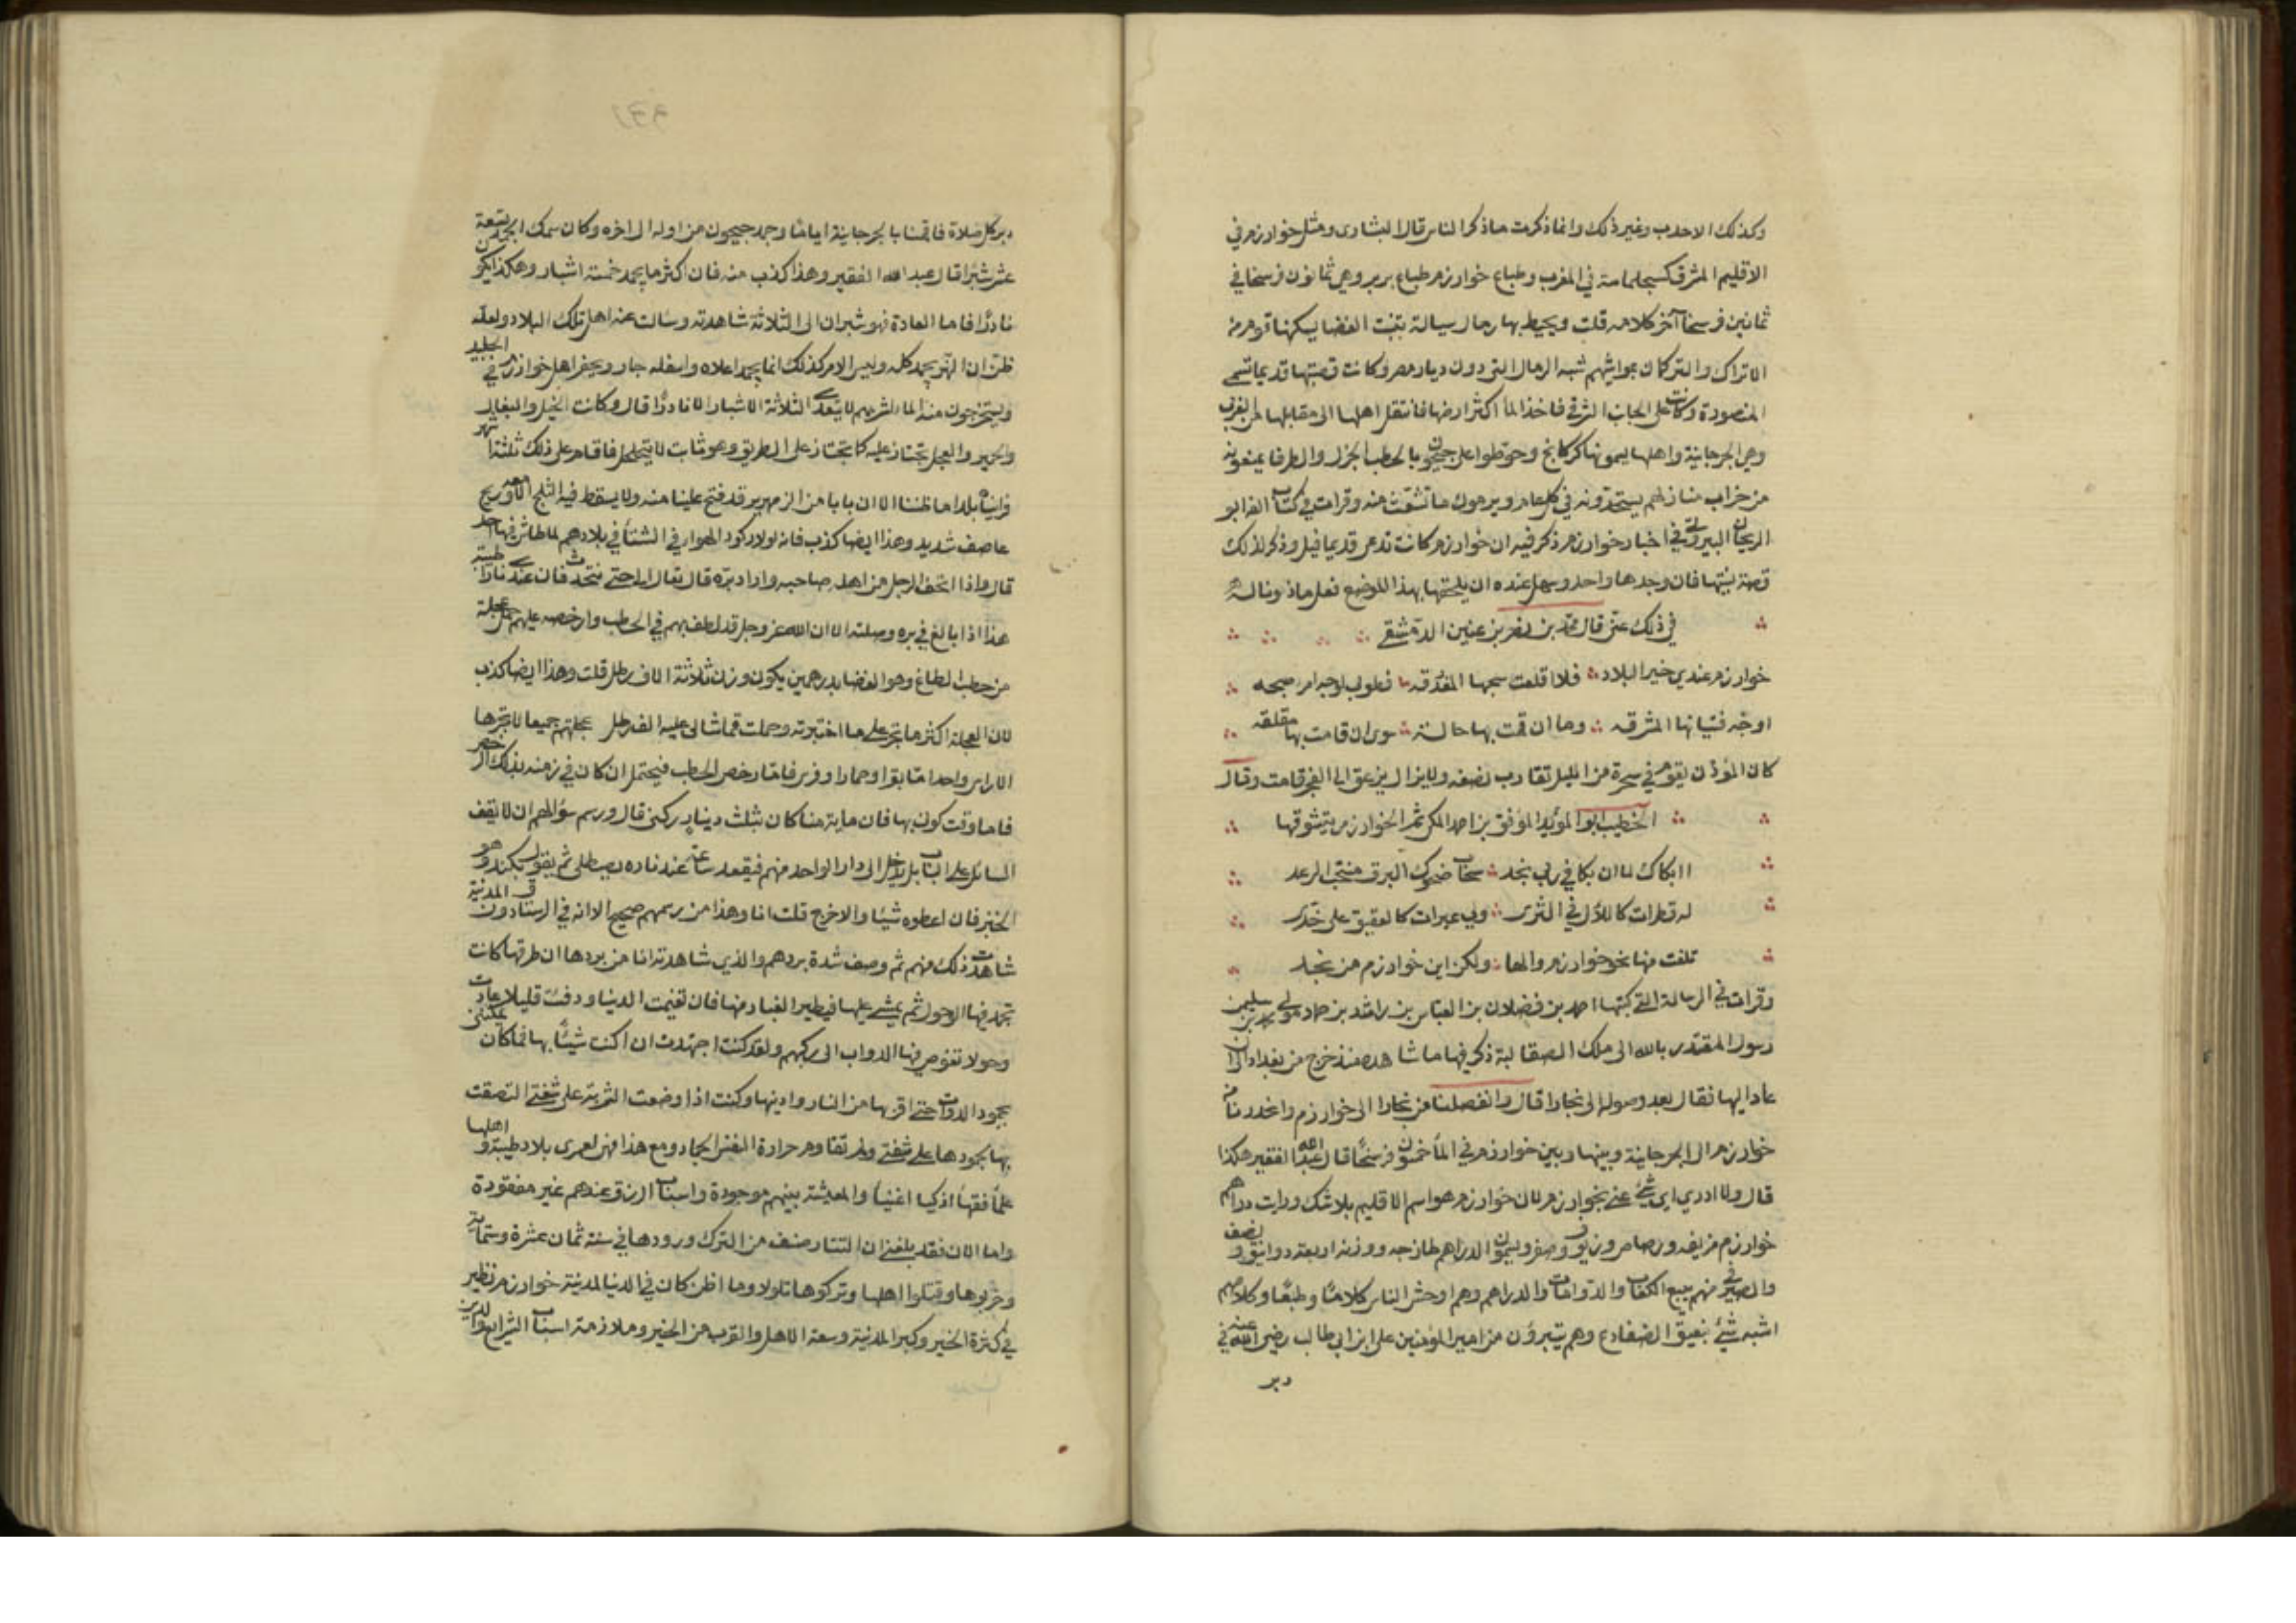 وكذلك الاحدب وغير ذلك وانما ذكرت ما ذكر الناس قال البشاري ومثل خوارزم في
الاقليم المشرق كسجلماسة في المغرب وطباع خوارزم طباع بربر وهي ثمانون فرسخا في
ثمانين فرسخا آخر كلامه قلت ويحيط بها رمال سيالة يسكنها قوم من
الاتراك والتركمان بمواشيهم شبه الرمال التي دون ديار مصر وكانت قصبتها قديما تسمى
المنصورة وكانت على الجانب الشرقي فاخذ الماء اكثر ارضها فانتقل اهلها الى مقابلها من الغربي
وهي الجرجانية واهلها يسمونها كركانج وحوطوا على جيحون بالحطب الجزل والطرفا يمنعونه
من خراب منازلهم يستجدونه في كل عام ويرمون ما تشعث منه وقرات في كتاب الفه ابو
الريحان البيروني في اخبار خوارزم ذكر فيه ان خوارزم كانت تدعى قديما فيل وذكر لذلك
قصة نسيتها فان وجدها واحد وسهل عنده ان يلحقها بهذا الموضع فعل ماذونا له
في ذلك عني قال محمد بن نصر بن عنين الدمشقي
خوارزم عندي خير البلاد فلا اقلعت سحبها المغدقه فطوبى لوجه امرء صبحه
اوجه فتيانها المشرقه وما ان قمت بها حالة سوى ان قامت بها مقلقه
كان المؤذن يقوم في سحرة من الليل تقارب نصفه ولا يزال يزعق الى الفجر قامت وقال
الخطيب ابو المويد الموفق بن احمد المكي ثم الخوارزمي يتشوقها
اابكاك لما ان بكا في ربى نجد سحاب ضحوك البرق منتحب الرعد
له قطرات كاللالي في الثرى ولي عبرات كالعقيق على خدي
تلفت منها نحو خوارزم والها ولكن اين خوارزم من نجد
وقرات في الرسالة التي كتبها احمد بن فضلان بن العباس بن راشد بن حماد مولى محمد بن سليمن
رسول المقتدر بالله الى ملك الصقالبة ذكر فيها ما شاهده منذ خرج من بغداد الى ان
عاد اليها فقال بعد وصوله الى بخارا قال وانفصلنا من بخارا الى خوارزم وانحدرنا من
خوارزم الى الجرجانية وبينها وبين خوارزم في الماء خمسون فرسخا قال عبد الله الفقير هكذا
قال ولا ادري اي شيء عنى بخوارزم لان خوارزم هو اسم الاقليم بلا شك ورايت دراهم
خوارزم مزيفه ورصاص وزيوف وصفر ويسمون الدراهم طازجه ووزنه اربعة دوانيق ونصف
والصيرفي منهم يبيع الكعاب والدوامات والدراهم وهم اوحش الناس كلاما وطبعا وكلامهم
اشبه شيء بنعيق الضفادع وهم يتبرؤن من امير المؤمنين علي ابن ابي طالب رضي الله عنه في
دبر
دبر كل صلاة فاقمنا بالجرجانية اياما وجمد جيحون من اوله الى اخره وكان سمك الجمد تسعة
عشر شبرا قال عبد الله الفقير وهذا كذب منه فان اكثر ما يجمد خمسة اشبار وهكذا يكون
نادرا فاما العادة فهو شبران الى الثلاثة شاهدته وسالت عنه اهل تلك البلاد ولعله
ظن ان النهر يجمد كله وليس الامر كذلك انما يجمد اعلاه واسفله جار ويحفر اهل خوارزم في الجليد
ويستخرجون منه الماء لشربهم لا يتعدى الثلاثة الاشبار الا نادرا قال وكانت الخيل والبغال
والحمير والعجل تجتاز عليه كما تجتاز على الطريق وهو ثابت لا يتحلحل فاقام على ذلك ثلثة اشهر
فراينا بلدا ما ظننا الا ان بابا من الزمهرير قد فتح علينا منه ولا يسقط فيه الثلج الا ومعه ريح
عاصف شديد وهذا ايضا كذب فانه لولا ركود الهوا في الشتاء في بلادهم لما عاش فيها احد
قال واذا اتحف الرجل من اهله صاحبه واراد بره قال تعال الي حتى نتحدث فان عندي نارا طيبة
هذا اذا بالغ في بره وصلته الا ان الله عز وجل قد لطف بهم في الحطب وارخصه عليهم حمل عجلة
من حطب الطاغ وهو الغضا بدرهمين يكون وزن ثلاثة الاف رطل قلت وهذا ايضا كذب
لان العجلة اكثر ما تجر على ما اختبرته وحملت قماشا لي عليه الف رطل عجلتهم جميعا لا يجرها
الا راس واحد اما بقر او حمار او فرس فاما رخص الحطب فيحتمل ان كان في زمنه بذلك الرخص
فاما وقت كوني بها فان ماية منا كان بثلث دينار ركني قال ورسم سؤالهم ان لا يقف
السائل على الباب بل يدخل الى دار الواحد منهم فيقعد ساعة عند ناره يصطلي ثم يقول بكند وهو
الخبز فان اعطوه شيئا والا خرج قلت انا وهذا من رسمهم صحيح الا انه في الرستاق دون المدينة
شاهدت ذلك منهم ثم وصف شدة بردهم والذي شاهدته انا من بردها ان طرقها كانت
تجمد فيها الوحول ثم يمشى عليها فيطير الغبار منها فان تغيمت الدنيا ودفئت قليلا عادت
وحولا تغوص فيها الدواب الى ركبهم ولقد كنت اجتهدت ان اكتب شيئا بها فما كان يمكنني
لجمود الدواة حتى اقربها من النار واذيبها وكنت اذا وضعت الشربة على شفتي التصقت
بها لجمودها على شفتي ولم تقاوم حرارة النفس الجماد ومع هذا فهي لعمري بلاد طيبة واهلها
علماء فقهاء اذكياء اغنياء والمعيشة بينهم موجودة واسباب الرزق عندهم غير مفقودة
واما الان فقد بلغني ان التتار صنف من الترك وردوها في سنة ثمان عشرة وستماية
وخربوها وقتلوا اهلها وتركوها تلولا وما اظن كان في الدنيا لمدينة خوارزم نظير
في كثرة الخير وكبر المدينة وسعة الاهل والقرب من الخير وملازمة اسباب الشرايع والدين